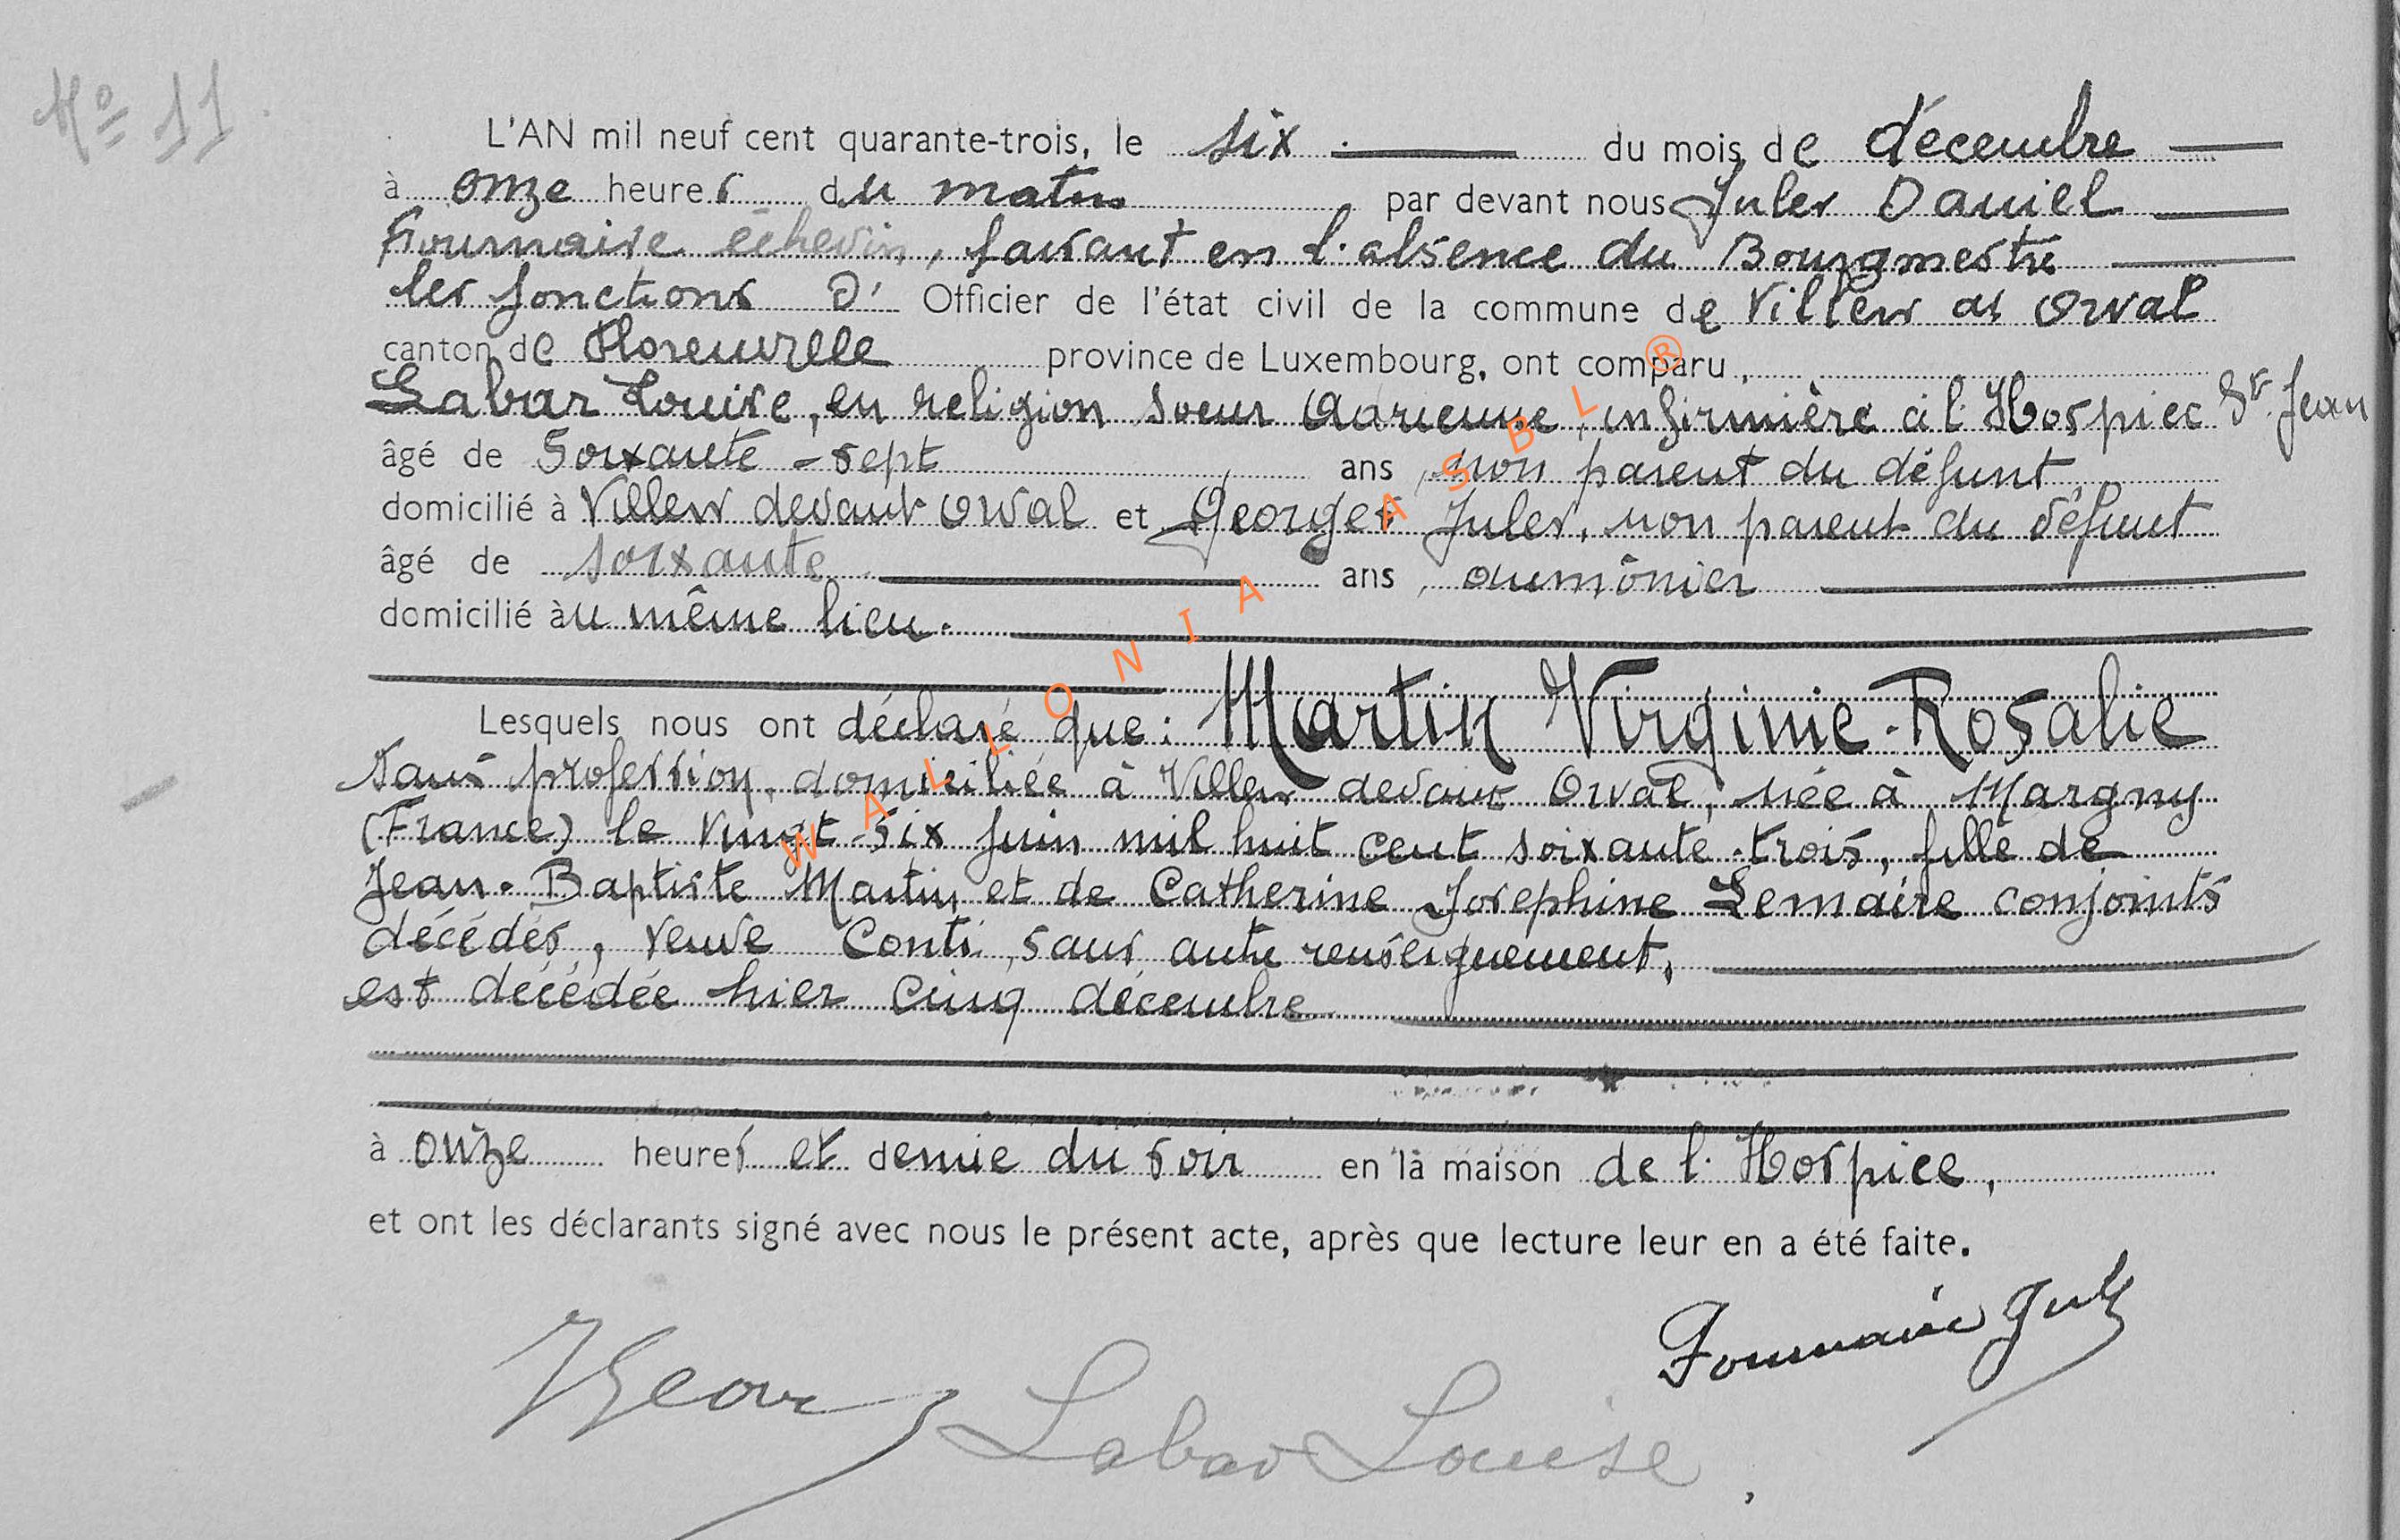 No 11.
L'AN mil neuf cent quarante-trois, le six du mois de décembre
à onze heures du matin par devant nous Jules Daniel
Fourmaise échevin, faisant en l'absence du Bourgmestre
les fonctions D' Officier de l'état civil de la commune de Villers dt Orval
canton de Florenville province de Luxembourg, ont comparu,
Labar Louise, en religion soeur Adrienne, infirmière à l'Hospice St Jean
âgé de Soixante-sept ans, non parent du défunt,
domicilié à Villers devant Orval et Georges Jules, non parent du défunt
âgé de soixante ans, aumônier
domicilié àu même lieu.
Lesquels nous ont déclaré que: Martin Virginie-Rosalie
sans profession, domiciliée à Villers devant Orval, née à Margny
(France) le vingt-six juin mil huit cent soixante-trois, fille de
Jean-Baptiste Martin et de Catherine Josephine Lemaire conjoints
décédés, veuve Conti, sans autre renseignement,
est décédée hier cinq décembre
à onze heures et demie du soir en la maison de l'Hospice,
et ont les déclarants signé avec nous le présent acte, après que lecture leur en a été faite.
Labar Louise
WALLONIA ASBL ®